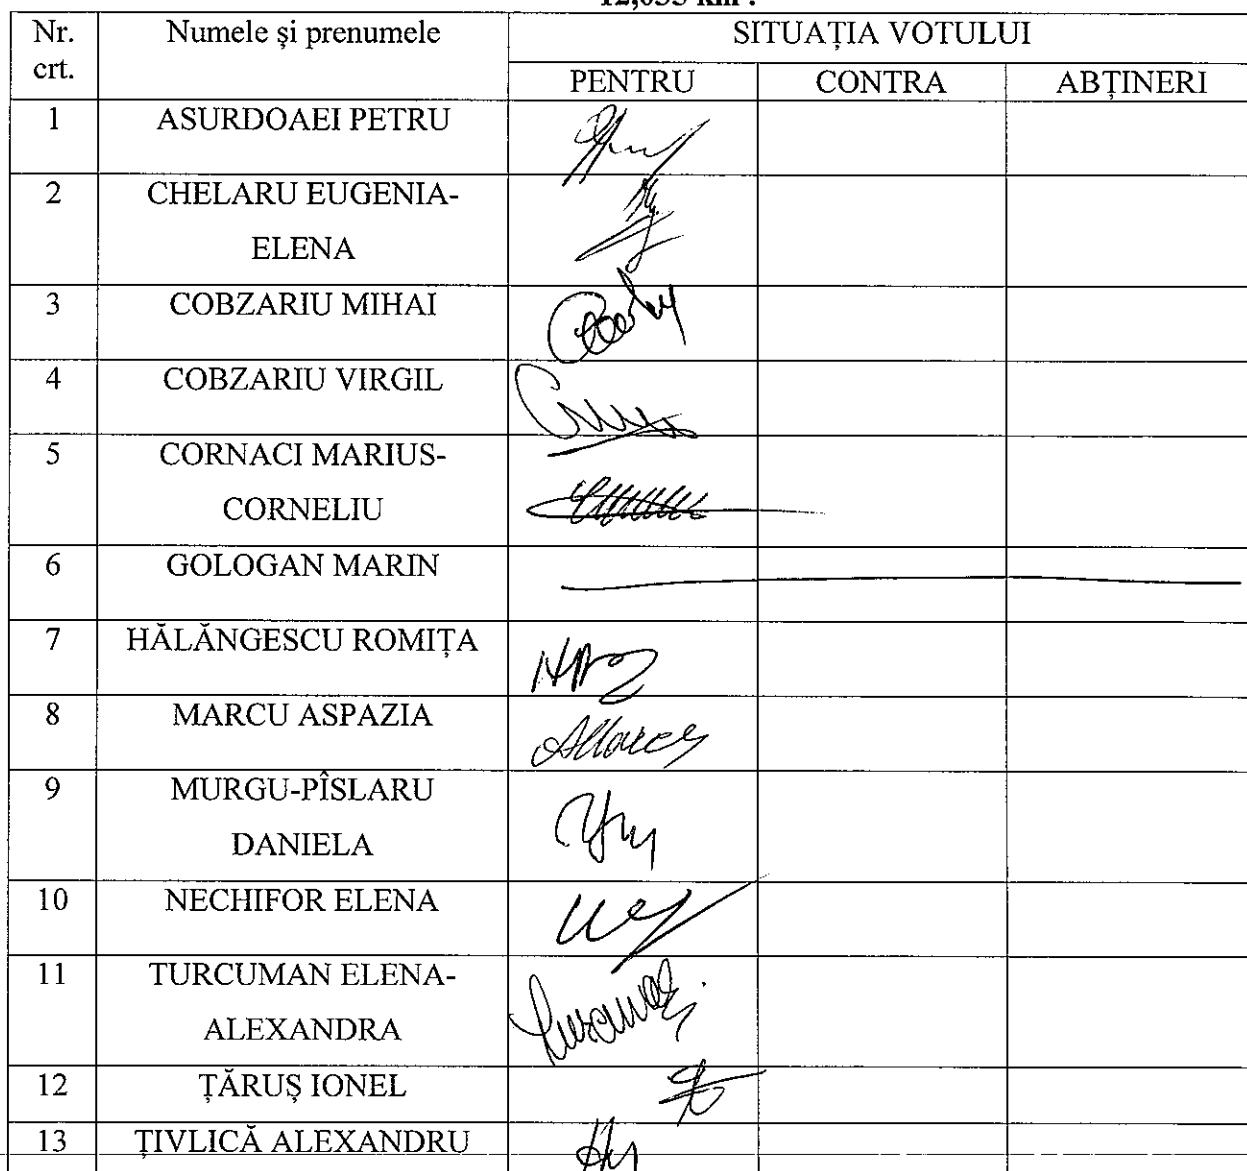 12,055 km .
Nr.
crt.
Numele și prenumele
SITUAȚIA VOTULUI
PENTRU
CONTRA
ABȚINERI
1
ASURDOAEI PETRU
2
CHELARU EUGENIA-
ELENA
3
COBZARIU MIHAI
4
COBZARIU VIRGIL
5
CORNACI MARIUS-
CORNELIU
6
GOLOGAN MARIN
7
HĂLĂNGESCU ROMIȚA
8
MARCU ASPAZIA
9
MURGU-PÎSLARU
DANIELA
10
NECHIFOR ELENA
11
TURCUMAN ELENA-
ALEXANDRA
12
ȚĂRUȘ IONEL
13
ȚIVLICĂ ALEXANDRU